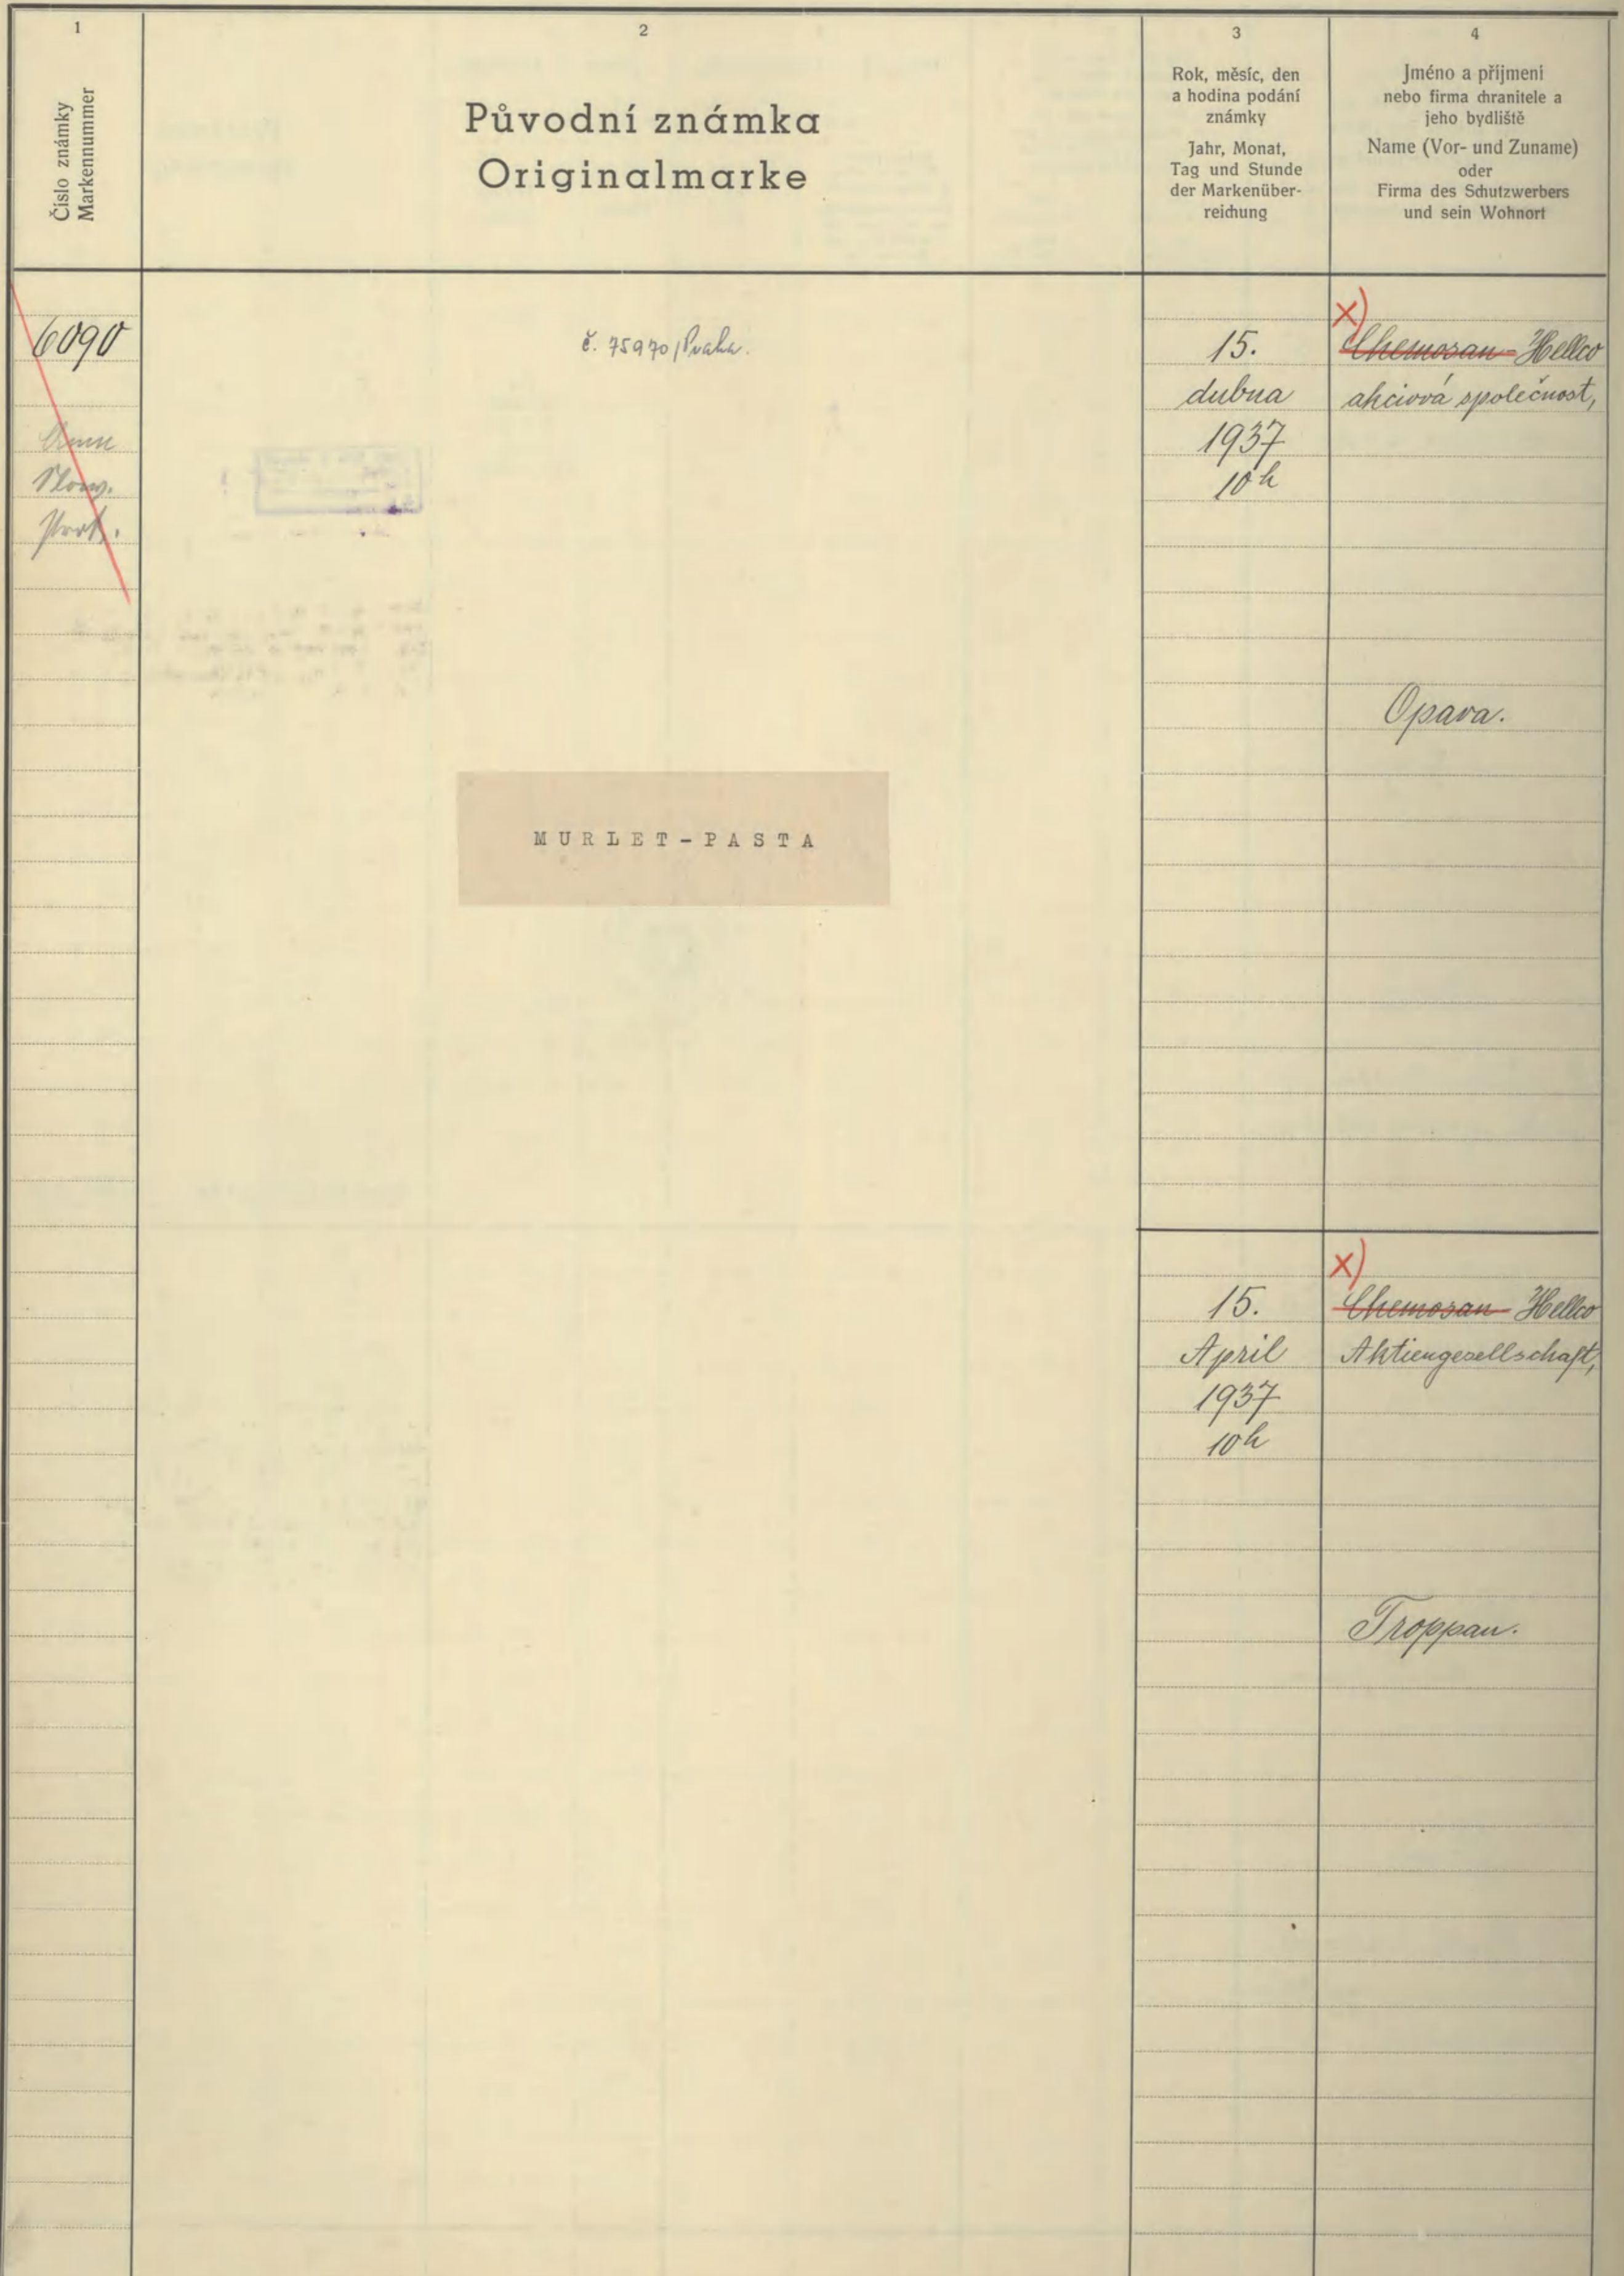 1
Číslo známky
Markennummer
2
Původní známka
Originalmarke
3
Rok, měsíc, den
a hodina podání
známky
Jahr, Monat,
Tag und Stunde
der Markenüber-
reichung
4
Jméno a příjmení
nebo firma chranitele a
jeho bydliště
Name (Vor- und Zuname)
oder
Firma des Schutzwerbers
und sein Wohnort
6090
Slow.
Prot.
č. 75970/Praha.
MURLET-PASTA
15.
dubna
1937
10h
x)
Chemosan-Hellco
akciová společnost,
Opava.
15.
April
1937
10h
x)
Chemosan-Hellco
Aktiengesellschaft,
Troppau.